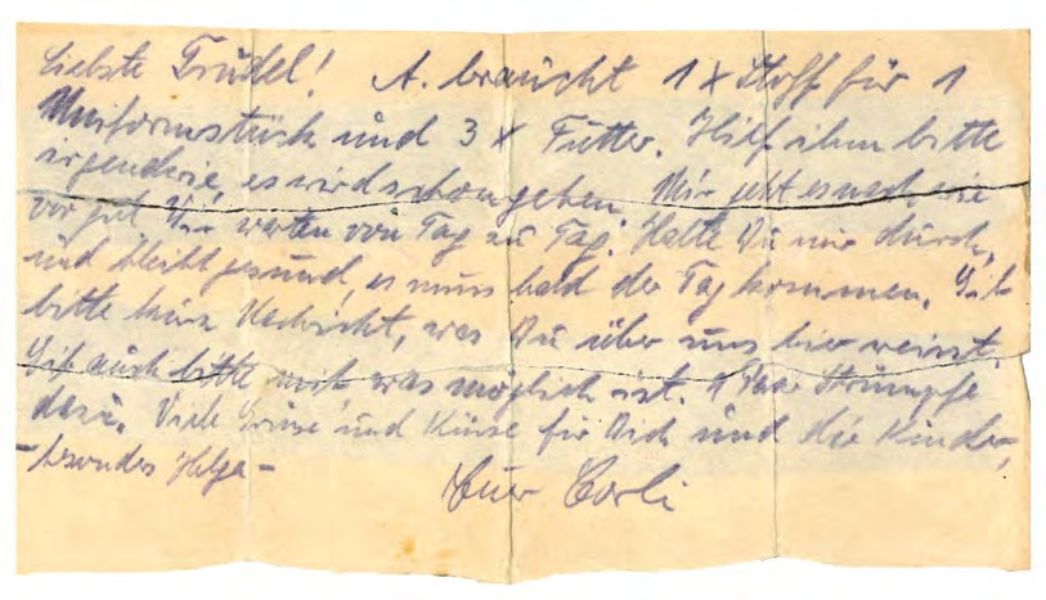 Liebste Trudel! A. braucht 1 x Stoff für 1
Uniformstück und 3 x Futter. Hilf ihm bitte
irgendwie, es wird schon gehen. Mir geht es nach wie
vor gut. Wir warten von Tag zu Tag. Halte Du nur durch,
und bleibt gesund, es muss bald der Tag kommen. Gib
bitte kurz Nachricht, was Du über uns hier weisst.
Gib auch bitte mit, was möglich ist. 1 Paar Strümpfe
dazu. Viele Grüsse und Küsse für Dich und die Kinder,
- besonders Helga -
Euer Carli